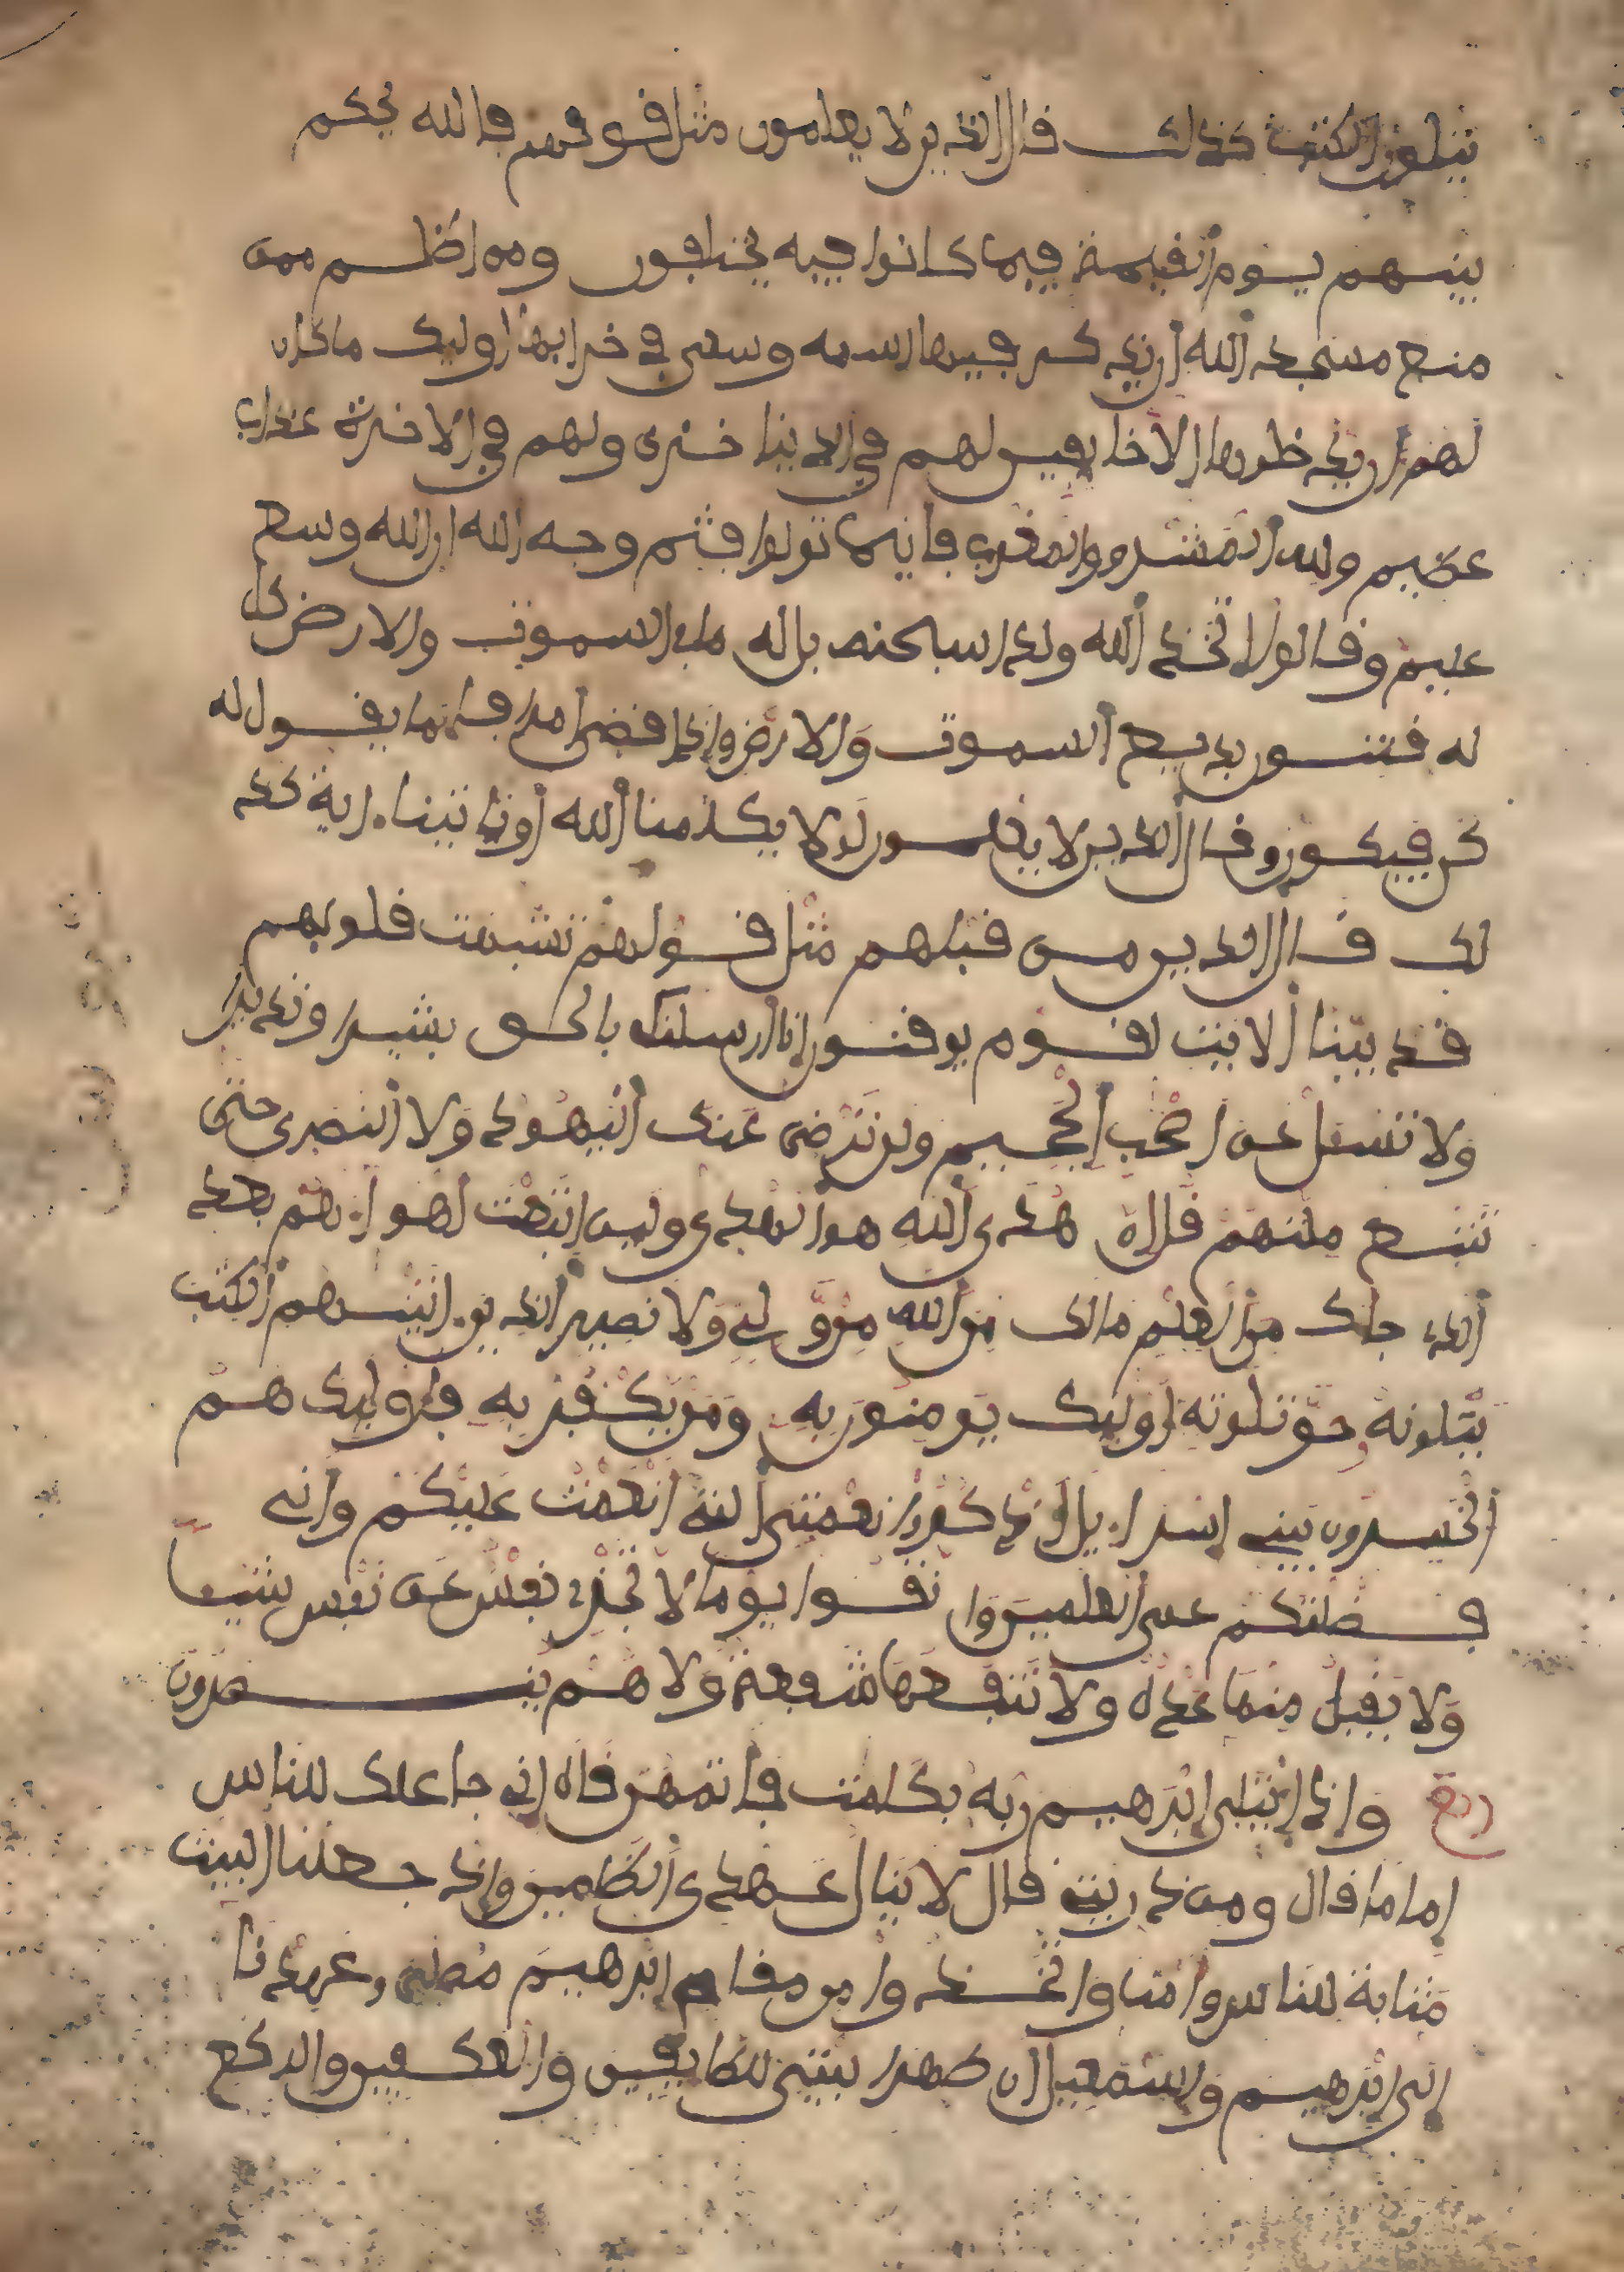 يتلون الكتب كذلك قال الذين لا يعلمون مثل قولهم فالله يحكم
بينهم يوم القيمة فيما كانوا فيه يختلفون ومن اظلم ممن
منع مسجد الله ان يذكر فيها اسمه وسعى في خرابها اوليك ما كان
لهم ان يدخلوها الا خايفين لهم في الدنيا خزى ولهم في الاخرة عذاب
عظيم ولله المشرق والمغرب فاينما تولوا فثم وجه الله ان الله وسع
عليم وقالوا اتخذ الله ولدا سبحنه بل له ما في السموت والارض كل
له قنتون بديع السموت والارض واذا قضى امرا فانما يقول له
كن فيكون وقال الذين لا يعلمون لولا يكلمنا الله او تاتينا اية كذ
لك قال الذين من قبلهم مثل قولهم تشبهت قلوبهم
قد بينا الايت لقوم يوقنون انا ارسلنك بالحق بشيرا ونذيرا
ولا تسل عن اصحب الجحيم ولن ترضى عنك اليهود ولا النصرى حتى
تتبع ملتهم قل ان هدى الله هو الهدى ولين اتبعت اهواءهم بعد
الذي جاك من العلم مالك من الله من ولي ولا نصير الذين اتينهم الكتب
يتلونه حق تلوته اوليك يومنون به ومن يكفر به فاوليك هم
الخسرون يبني اسراءيل اذكروا نعمتي التي انعمت عليكم واني
فضلتكم على العلمين وا تقوا يوما لا تجزي نفس عن نفس شيا
ولا يقبل منها عدل ولا تنفعها شفعة ولا هم ينصرون
ربع واذا ابتلى ابرهيم ربه بكلمت فاتمهن قال اني جاعلك للناس
اماما قال ومن ذريتي قال لا ينال عهدى الظلمين واذ جعلنا البيت
مثابة للناس وامنا واتخذوا من مقام ابرهيم مصلى وعهدنا
الى ابرهيم واسمعيل ان طهرا بيتي للطايفين والعكفين والركع